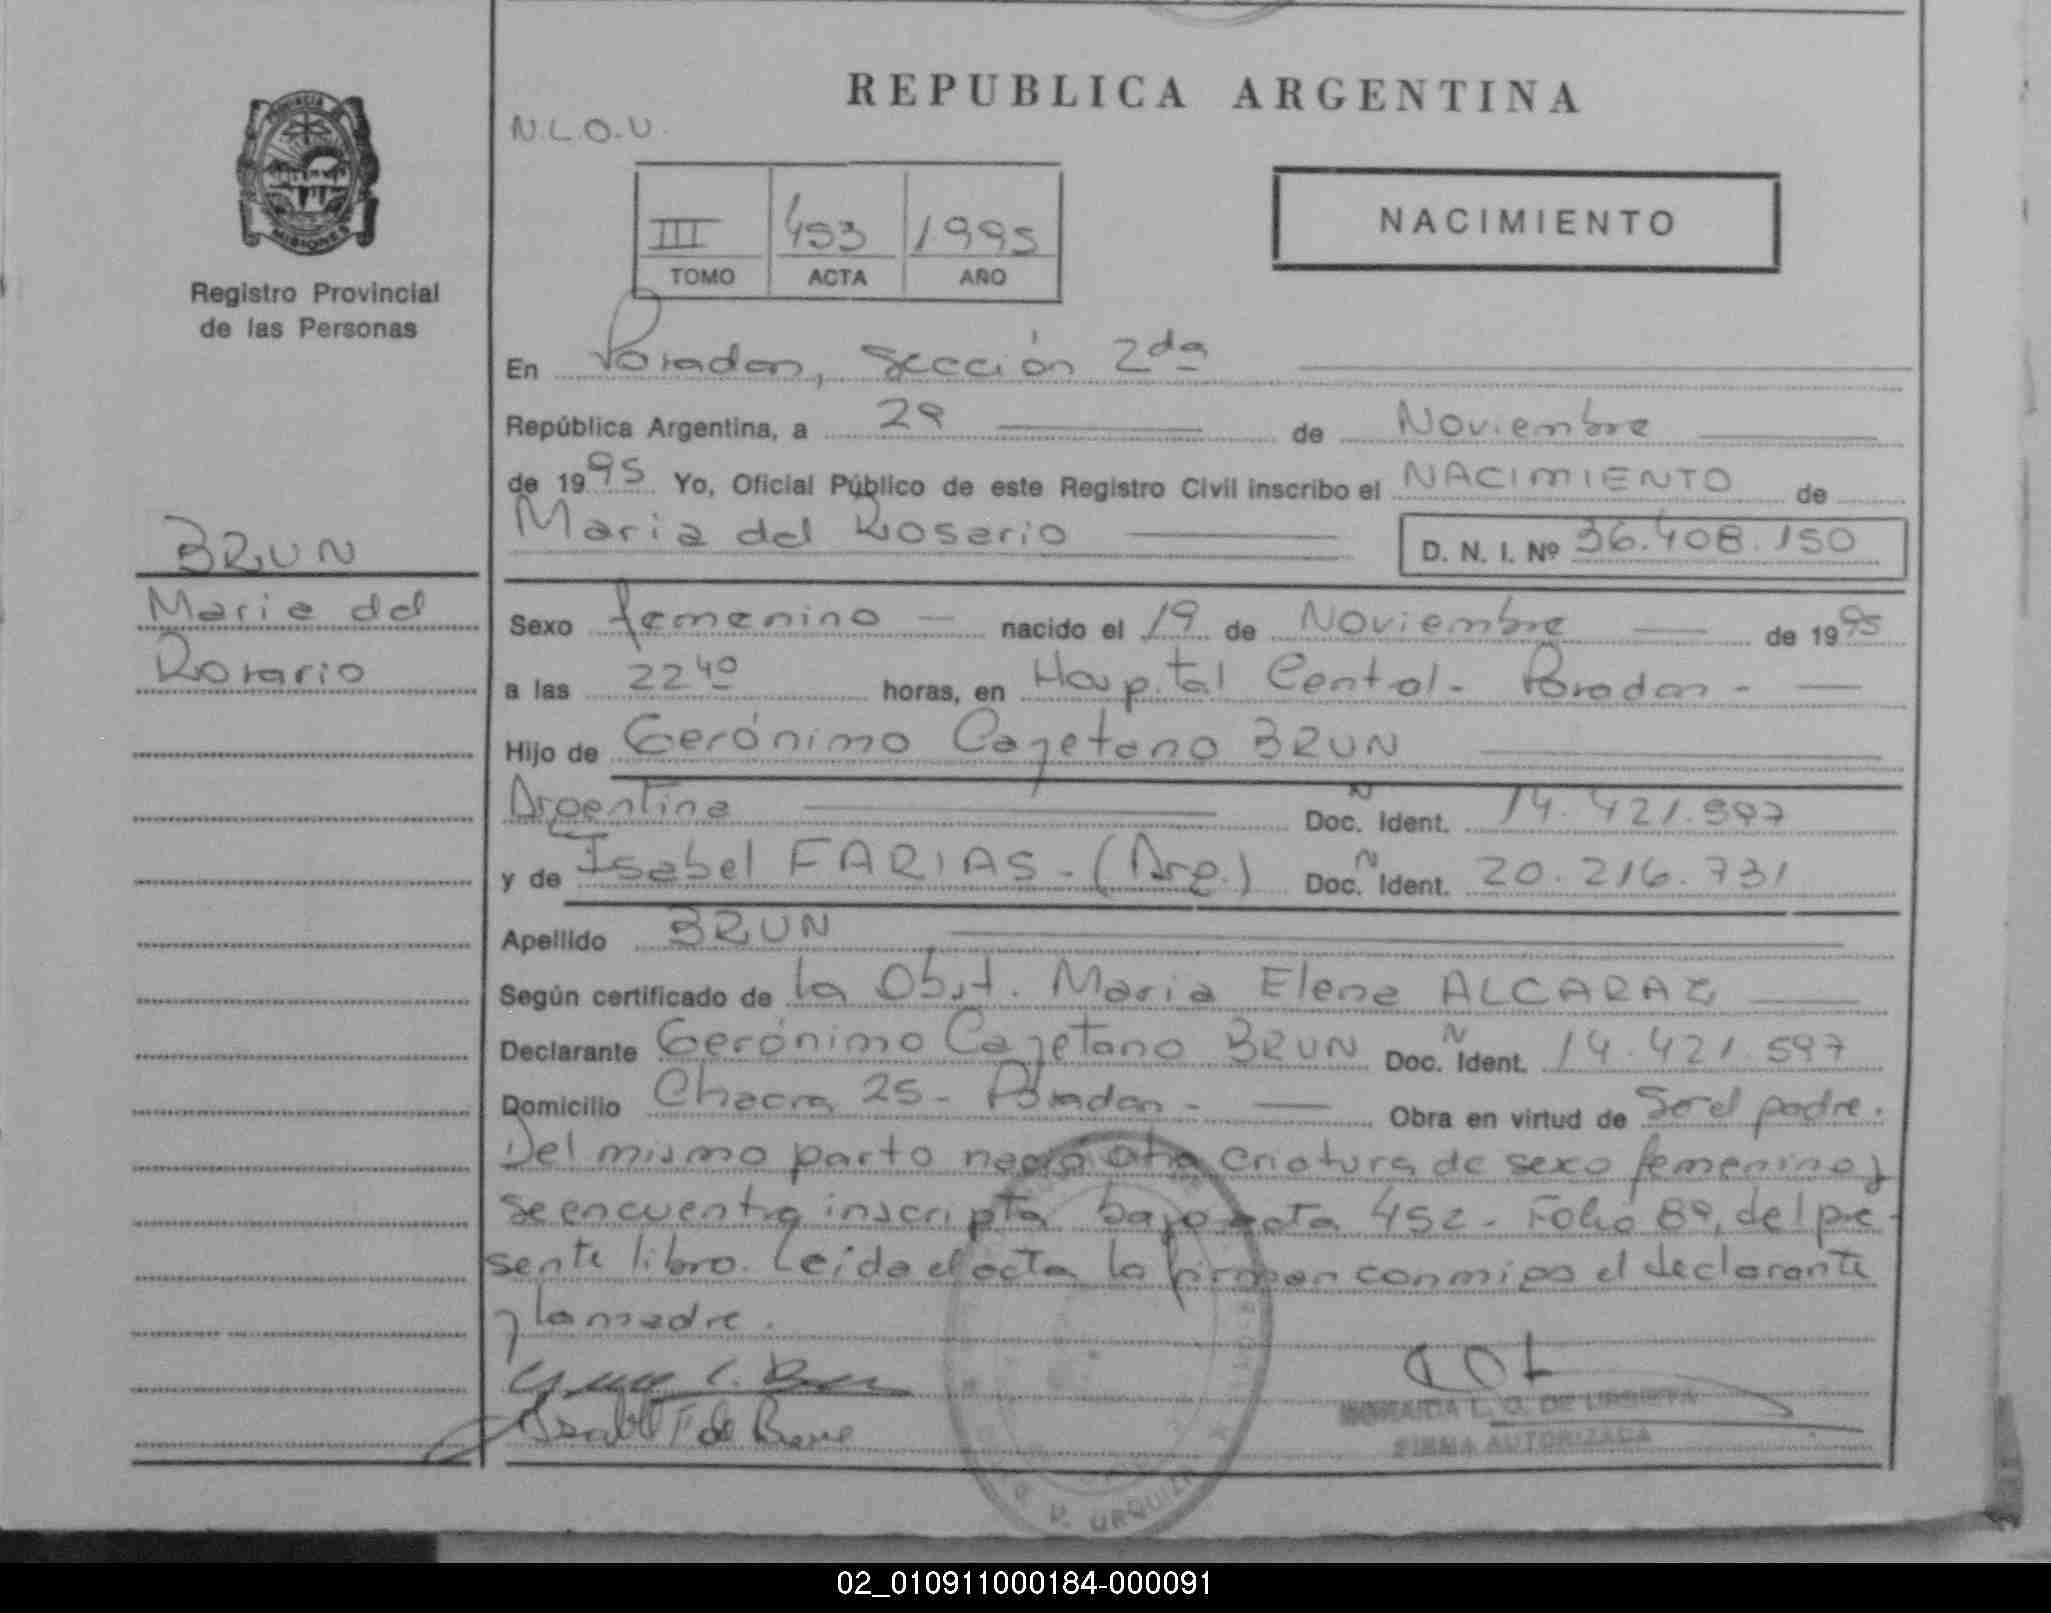 REPUBLICA ARGENTINA
N.L.O.U.
PROVINCIA
MISIONES
Registro Provincial
de las Personas
III 453 1995
TOMO ACTA AÑO
NACIMIENTO
En Posadas, Sección 2da
República Argentina, a 29 de Noviembre
de 1995 Yo, Oficial Público de este Registro Civil inscribo el NACIMIENTO de
Maria del Rosario
D. N. I. Nº 36.408.150
BRUN
Maria del
Rosario
Sexo femenino nacido el 19 de Noviembre de 1995
a las 22 40 horas, en Hospital Central - Posadas -
Hijo de Gerónimo Cayetano BRUN
Argentina Doc. N Ident. 14.421.597
y de Isabel FARIAS - (Arg.) Doc. N Ident. 20.216.731
Apellido BRUN
Según certificado de la Obst. Maria Elena ALCARAZ
Declarante Gerónimo Cayetano BRUN Doc. N Ident. 14.421.597
Domicilio Chacra 25 - Posadas - Obra en virtud de Ser el padre.
Del mismo parto nació otra criatura de sexo femenino y
se encuentra inscripta bajo acta 452 - Folio 89, del pre-
sente libro. Leída el acta la firman conmigo el declarante
y la madre.
Isabel F de Brun
L. G. DE URBIETA
FIRMA AUTORIZADA
URQUIZA
02_010911000184-000091